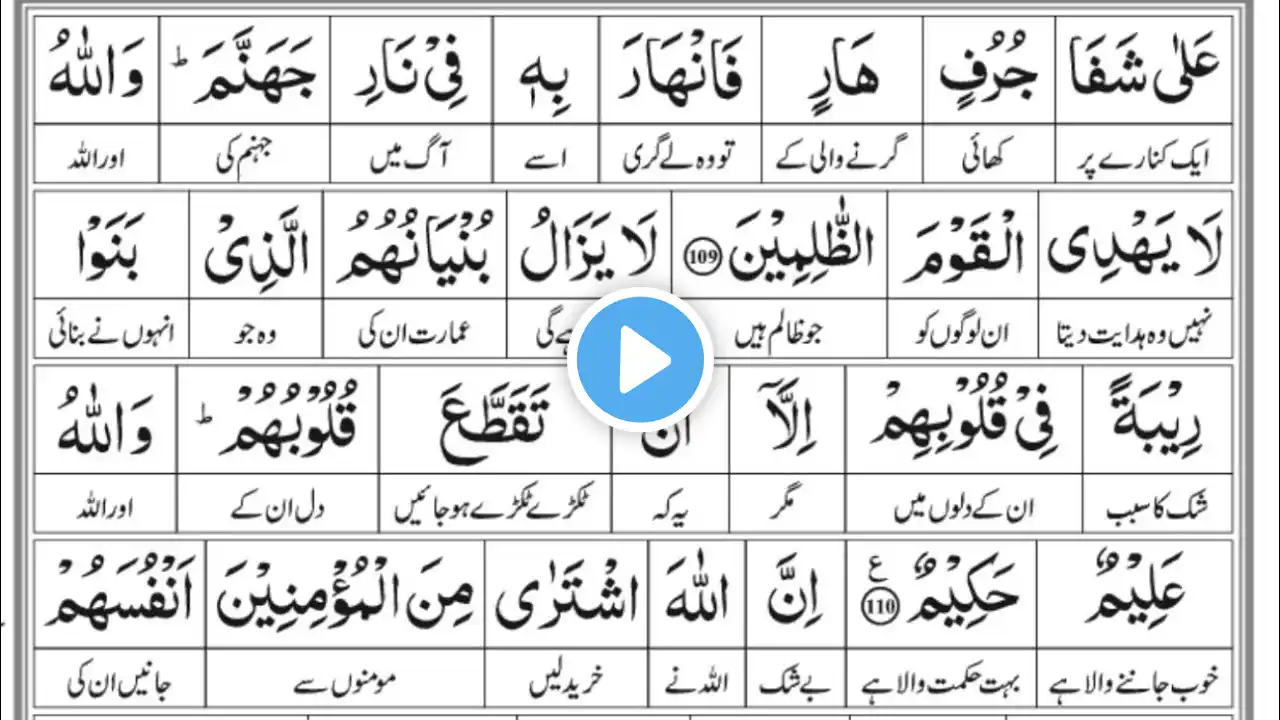 عَلٰى شَفَا جُرُفٍ هَارٍ فَانْهَارَ بِهٖ فِيْ نَارِ جَهَنَّمَ ؕ وَاللّٰهُ
ایک کنارے پر کھائی گرنے والی کے تو وہ لے گری اسے آگ میں جہنم کی اور اللہ
لَا يَهْدِى الْقَوْمَ الظّٰلِمِيْنَ 109 لَا يَزَالُ بُنْيَانُهُمُ الَّذِيْ بَنَوْا
نہیں وہ ہدایت دیتا ان لوگوں کو جو ظالم ہیں عمارت ان کی وہ جو انہوں نے بنائی
رِيْبَةً فِيْ قُلُوْبِهِمْ اِلَّآ تَقَطَّعَ قُلُوْبُهُمْ ؕ وَاللّٰهُ
شک کا سبب ان کے دلوں میں مگر یہ کہ ٹکڑے ٹکڑے ہو جائیں دل ان کے اور اللہ
عَلِيْمٌ حَكِيْمٌ ع 110 اِنَّ اللّٰهَ اشْتَرٰى مِنَ الْمُؤْمِنِيْنَ اَنْفُسَهُمْ
خوب جاننے والا ہے بہت حکمت والا ہے بے شک اللہ نے خرید لیں مومنوں سے جانیں ان کی